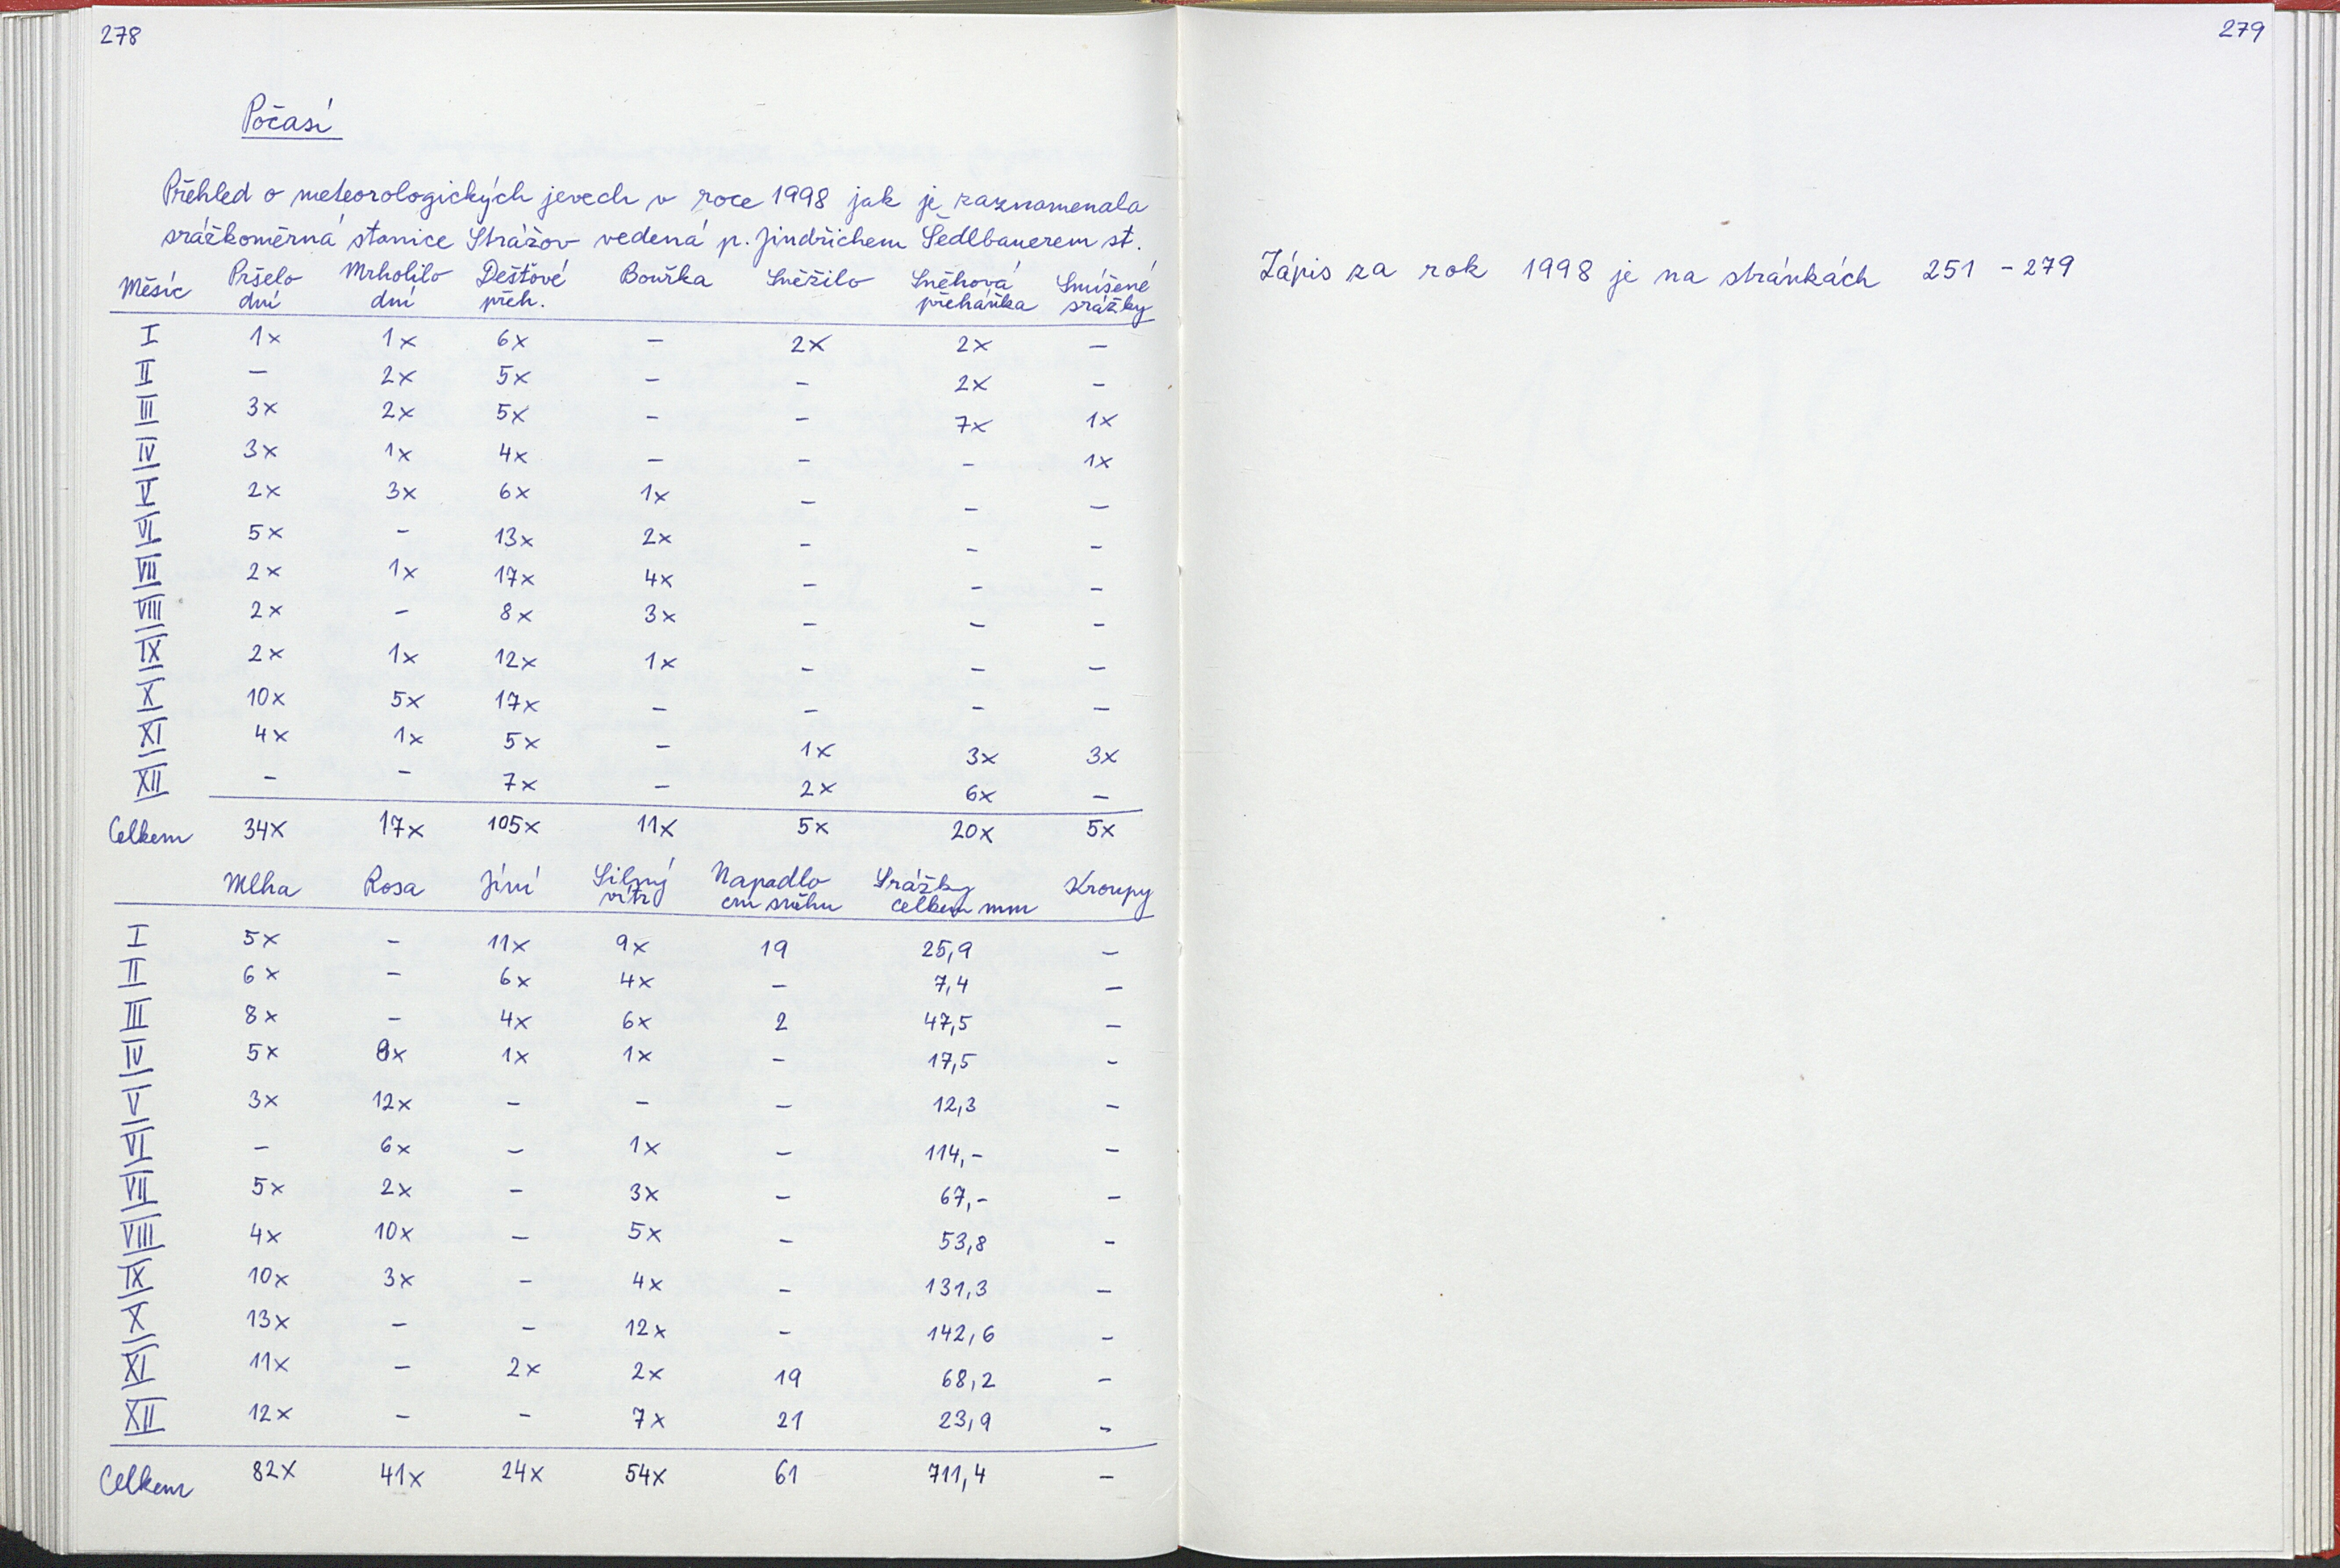 278
Počasí
Přehled o meteorologických jevech v roce 1998 jak je zaznamenala
srážkoměrná stanice Strážov vedená p. Jindřichem Šedlbauerem st.
Měsíc Pršelo dní Mrholilo dní Dešťové přeh. Bouřka Sněžilo Sněhová přeháňka Smíšené srážky
I 1x 1x 6x – 2x 2x –
II – 2x 5x – – 2x –
III 3x 2x 5x – – 7x 1x
IV 3x 1x 4x – – – 1x
V 2x 3x 6x 1x – – –
VI 5x – 13x 2x – – –
VII 2x 1x 17x 4x – – –
VIII 2x – 8x 3x – – –
IX 2x 1x 12x 1x – – –
X 10x 5x 17x – – – –
XI 4x 1x 5x – 1x 3x 3x
XII – – 7x – 2x 6x –
Celkem 34x 17x 105x 11x 5x 20x 5x
Mlha Rosa Jíní Silný vítr Napadlo cm sněhu Srážky celkem mm Kroupy
I 5x – 11x 9x 19 25,9 –
II 6x – 6x 4x – 7,4 –
III 8x – 4x 6x 2 47,5 –
IV 5x 8x 1x 1x – 17,5 –
V 3x 12x – – – 12,3 –
VI – 6x – 1x – 114,- –
VII 5x 2x – 3x – 67,- –
VIII 4x 10x – 5x – 53,8 –
IX 10x 3x – 4x – 131,3 –
X 13x – – 12x – 142,6 –
XI 11x – 2x 2x 19 68,2 –
XII 12x – – 7x 21 23,9 –
Celkem 82x 41x 24x 54x 61 711,4 –
279
Zápis za rok 1998 je na stránkách 251 – 279